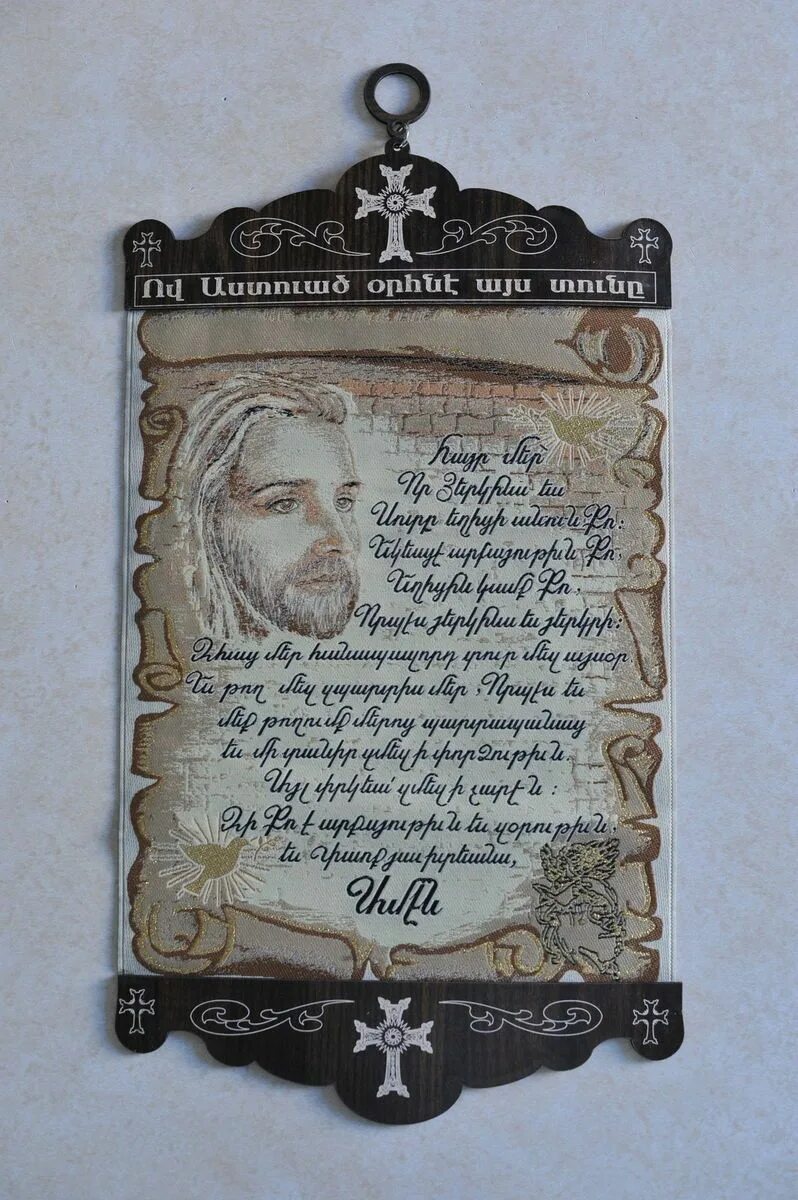 Ով Աստուած օրհնէ այս տունը
Հայր մեր
Որ Յերկինս ես
Սուրբ եղիցի անուն Քո:
Եկեսցէ արքայութիւն Քո,
Եղիցին կամք Քո,
Որպէս յերկինս եւ յերկրի:
Զհաց մեր հանապազորդ տուր մեզ այսօր,
Եւ թող մեզ զպարտիս մեր, Որպէս եւ
մեք թողումք մերոց պարտապանաց
եւ մի տանիր զմեզ ի փորձութիւն.
Այլ փրկեա՛ զմեզ ի չարէն :
Զի Քո է արքայութիւն եւ զօրութիւն,
եւ Փառք յաւիտեանս,
Ամէն